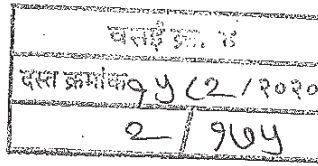 वसई क्र. ४
दस्त क्रमांक १५८२/२०२०
२/१७५